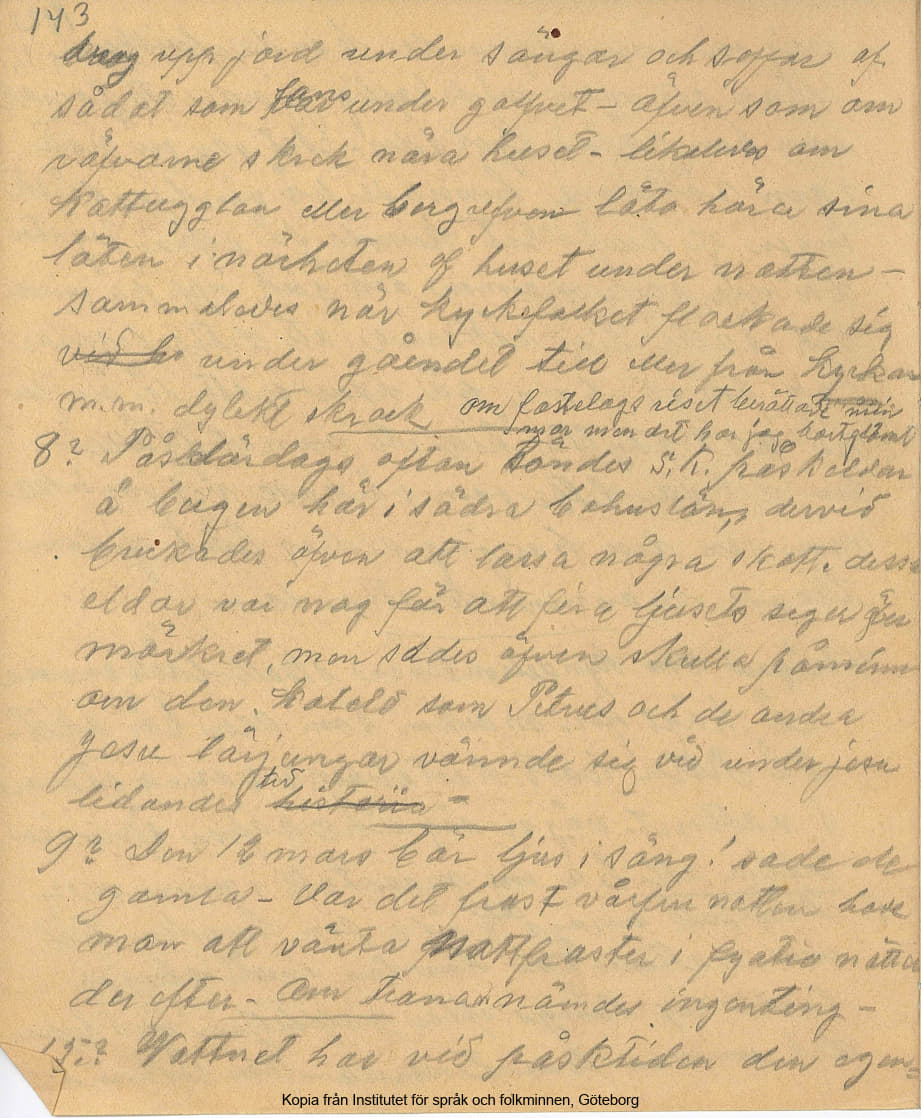 143
drog upp jord under sängar och soffor af
sådat som fans under golfvet – äfven som om
räfvarne skrek nära huset – likaledes om
Kattugglan eller bergufven läto höra sina
läten i närheten af huset under natten –
sammaledes när kyrkefolket flockade sig
under gåendet till eller från kyrkan
m.m. dylikt skrock om fastelags riset berättade min
mor men det har jag bortglömt
8? Påskdardags aftan tändes s.k. påskeldar
å bergen här i södra bohuslän, dervid
brukades äfven att lossa några skott. dessa
eldar var nog för att fira ljusets seger öfver
mörkret, men sades äfven skulla påminna
om den koleld som Petrus och de andra
Jesu lärjungar värmde sig vid under jesu
lidandes tid –
9? Den 12 mars bär ljus i säng! sade de
gamla – Var det frost vårfru natten hade
man att vänta Nattfroster i fyatio nätter
der efter – Om tranan nämdes ingenting –
15? Wattnet har vid påsktiden den egen=
Kopia från Institutet för språk och folkminnen, Göteborg